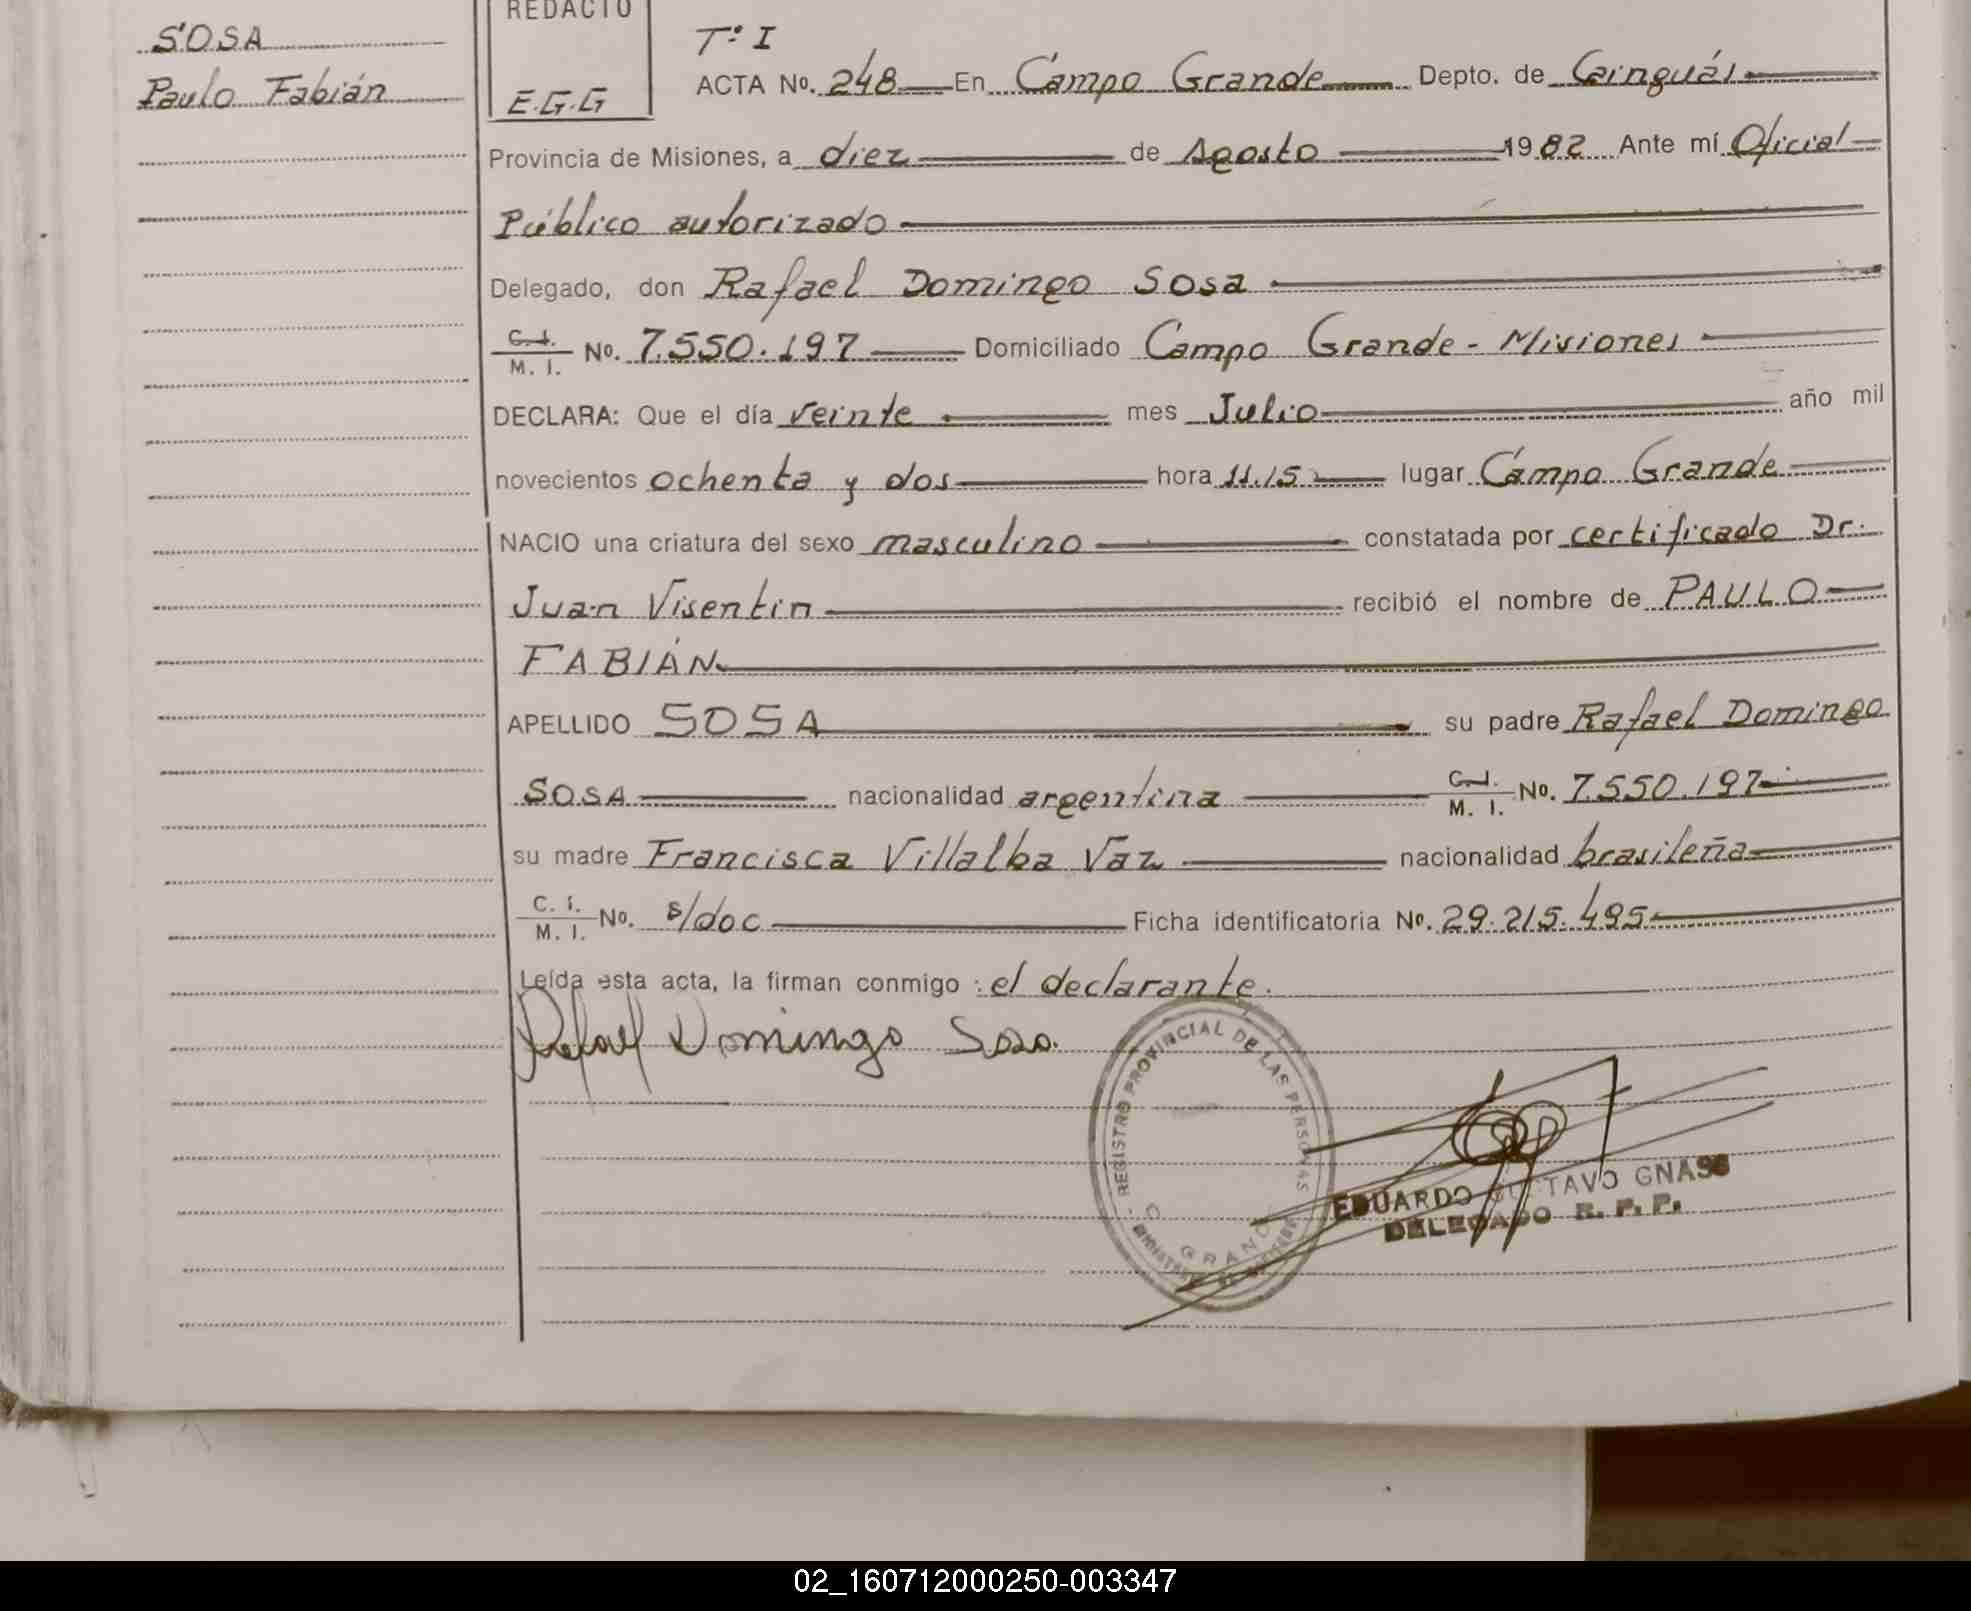 SOSA
Paulo Fabián
REDACTO
E.G.G
Tº I
ACTA No. 248 En Campo Grande Depto. de Cainguás
Provincia de Misiones, a diez de Agosto 1982 Ante mí Oficial
Público autorizado
Delegado, don Rafael Domingo Sosa
C.I. M. I. No. 7.550.197 Domiciliado Campo Grande - Misiones
DECLARA: Que el día veinte mes Julio año mil
novecientos ochenta y dos hora 11.15 lugar Campo Grande
NACIO una criatura del sexo masculino constatada por certificado Dr.
Juan Visentin recibió el nombre de PAULO
FABIÁN
APELLIDO SOSA su padre Rafael Domingo
SOSA nacionalidad argentina C.I. M. I. No. 7.550.197
su madre Francisca Villalba Vaz nacionalidad brasileña
C. I. M. I. No. s/doc Ficha identificatoria No. 29.215.495
Leída esta acta, la firman conmigo : el declarante.
Rafael Domingo Sosa.
REGISTRO PROVINCIAL DE LAS PERSONAS
C GRANDE
MINISTERIO DE GOBIERNO
EDUARDO GUSTAVO GNASS
DELEGADO R. P. P.
02_160712000250-003347